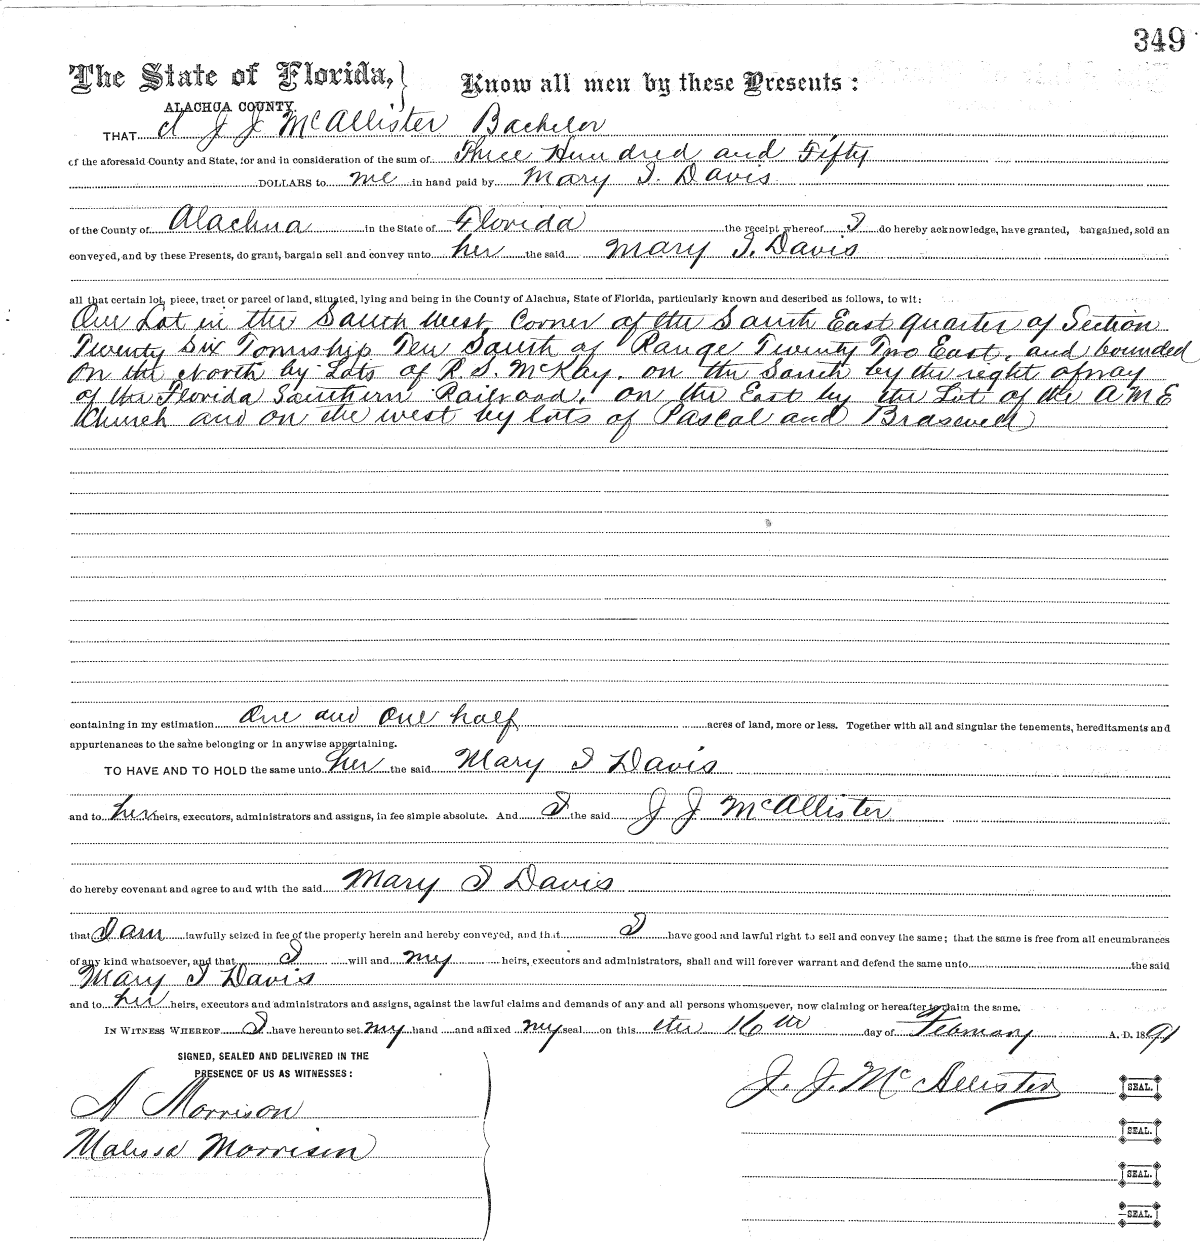 349
The State of Florida, } Know all men by these Presents :
ALACHUA COUNTY.
THAT J J McAllister Bachelor
of the aforesaid County and State, for and in consideration of the sum of Three Hundred and Fifty
DOLLARS to me in hand paid by Mary I. Davis
of the County of Alachua in the State of Florida the receipt whereof I do hereby acknowledge, have granted, bargained, sold an
conveyed, and by these Presents, do grant, bargain sell and convey unto her the said Mary I. Davis
all that certain lot, piece, tract or parcel of land, situated, lying and being in the County of Alachua, State of Florida, particularly known and described as follows, to wit:
One Lot in the South West Corner of the South East quarter of Section
Twenty Six Township Ten South of Range Twenty Two East. and bounded
On the North by Lots of R. S. McKay. on the South by the right of way
of the Florida Southern Railroad. on the East by the Lot of the A M E
Church and on the west by lots of Pascal and Braswell
containing in my estimation One and One half acres of land, more or less. Together with all and singular the tenements, hereditaments and
appurtenances to the same belonging or in anywise appertaining.
TO HAVE AND TO HOLD the same unto her the said Mary I Davis
and to her heirs, executors, administrators and assigns, in fee simple absolute. And I the said J J McAllister
do hereby covenant and agree to and with the said Mary I Davis
that I am lawfully seized in fee of the property herein and hereby conveyed, and that I have good and lawful right to sell and convey the same; that the same is free from all encumbrances
of any kind whatsoever, and that I will and my heirs, executors and administrators, shall and will forever warrant and defend the same unto the said
Mary I Davis
and to her heirs, executors and administrators and assigns, against the lawful claims and demands of any and all persons whomsoever, now claiming or hereafter to claim the same.
IN WITNESS WHEREOF I have hereunto set my hand and affixed my seal on this the 16th day of February A. D. 1891
SIGNED, SEALED AND DELIVERED IN THE
PRESENCE OF US AS WITNESSES :
J. J. McAllister SEAL.
A Morrison
SEAL.
Malissa Morrison
SEAL.
SEAL.